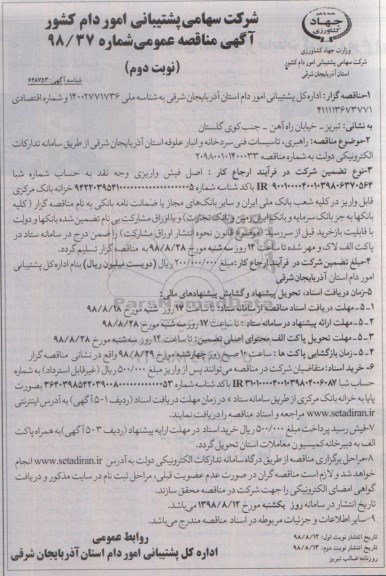 شرکت سهامی پشتیبانی امور دام کشور
آگهی مناقصه عمومی شماره ۹۸/۳۷
(نوبت دوم)
جهاد کشاورزی
وزارت جهاد کشاورزی
شرکت سهامی پشتیبانی امور دام کشور
استان آذربایجان شرقی
شناسه آگهی: ۶۲۸۷۵۳۰
۱-مناقصه گزار: اداره کل پشتیبانی امور دام استان آذربایجان شرقی به شناسه ملی ۱۴۰۰۲۷۷۱۷۳۶ و شماره اقتصادی
۴۱۱۱۱۳۶۷۳۷۷۱
به نشانی: تبریز - خیابان راه آهن - جنب کوی گلستان
۲-موضوع مناقصه: راهبری، تاسیسات فنی سردخانه و انبار علوفه استان آذربایجان شرقی از طریق سامانه تدارکات
الکترونیکی دولت به شماره مناقصه
۳-نوع تضمین شرکت در فرآیند ارجاع کار: اصل فیش واریزی وجه نقد به حساب شماره شبا
باکد شناسه شماره خزانه بانک مرکزی
قابل واریز در کلیه شعب بانک ملی ایران و سایر بانک‌های مجاز یا ضمانت نامه بانکی به نام مناقصه گزار (کلیه
با قابلیت بازخرید قبل از سررسید
پاکت الف لاک و مهر شده تا ساعت ۱۴ روز سه شنبه مورخ ۹۸/۸/۲۸ به مناقصه گزار تسلیم گردد.
۴-مبلغ تضمین شرکت در فرآیند ارجاع کار: مبلغ ۲۰۰/۰۰۰/۰۰۰ ریال (دویست میلیون ریال) بنام اداره کل پشتیبانی
امور دام استان آذربایجان شرقی
۵-زمان دریافت اسناد، تحویل پیشنهاد و گشایش پیشنهادهای مالی:
۱-۵-مهلت دریافت اسناد مناقصه از سامانه ستاد: تا ساعت ۱۷ روز شنبه مورخ ۹۸/۸/۱۸
۲-۵-مهلت ارائه پیشنهاد در سامانه ستاد: تا ساعت ۱۷ روز سه شنبه مورخ ۹۸/۸/۲۸
۳-۵-مهلت تحویل پاکت الف محتوی اصل تضمین: تا ساعت ۱۴ روز سه شنبه مورخ ۹۸/۸/۲۸
۴-۵-زمان بازگشایی پاکت ها: ساعت ۱۰ صبح روز چهارشنبه مورخ ۹۸/۸/۲۹ واقع در نشانی مناقصه گزار
۶-خرید اسناد: متقاضیان شرکت در مناقصه می‌توانند پس از واریز مبلغ ۵۰۰/۰۰۰ ریال (غیرقابل استرداد) به شماره
حساب شبا باکد شناسه شماره بصورت
پایا به خزانه بانک مرکزی از طریق سامانه ستاد در زمان مهلت دریافت اسناد (ردیف ۱-۵ آگهی) به آدرس اینترنتی
www.setadiran.ir مراجعه و اسناد مناقصه را دریافت نمایند.
۷-فیش رسید پرداخت مبلغ ۵۰۰/۰۰۰ ریال خرید اسناد در مهلت ارایه پیشنهاد (ردیف ۳-۵ آگهی) به همراه پاکت
الف به دبیرخانه کمیسیون معاملات استان تحویل گردد.
۸-مراحل برگزاری مناقصه از طریق درگاه سامانه تدارکات الکترونیکی دولت به آدرس www.setadiran.ir انجام
خواهد شد و لازم است مناقصه گران در صورت عدم عضویت قبلی، مراحل ثبت نام در سایت مذکور و دریافت
گواهی امضای الکترونیکی را جهت شرکت در مناقصه محقق سازند.
تاریخ انتشار در سامانه روز یکشنبه مورخ ۱۳۹۸/۸/۱۲ می‌باشد.
۹-سایر اطلاعات و جزئیات مربوطه در اسناد مناقصه مندرج می‌باشد.
تاریخ انتشار نوبت اول: ۹۸/۸/۱۲
تاریخ انتشار نوبت دوم: ۹۸/۸/۱۳
روزنامه صائب تبریز
روابط عمومی
اداره کل پشتیبانی امور دام استان آذربایجان شرقی